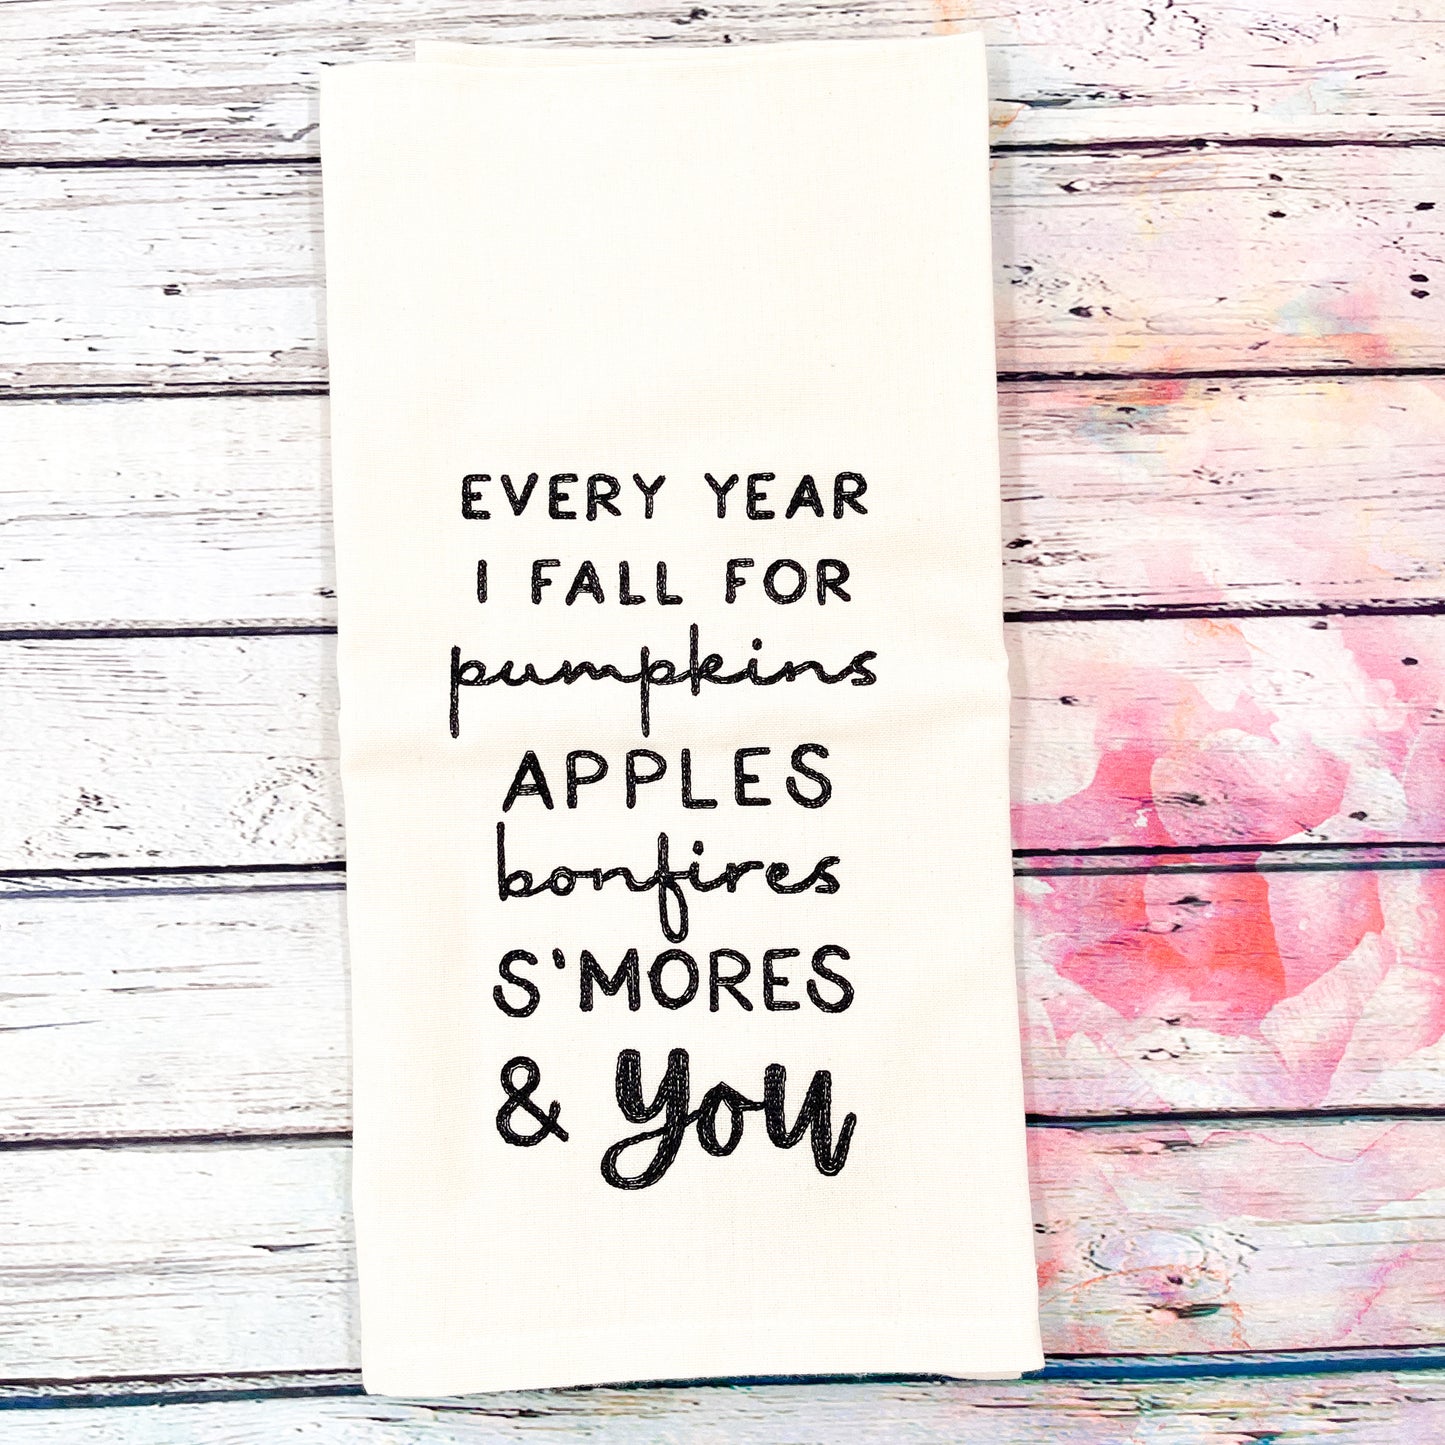 EVERY YEAR
I FALL FOR
pumpkins
APPLES
bonfires
S'MORES
& you